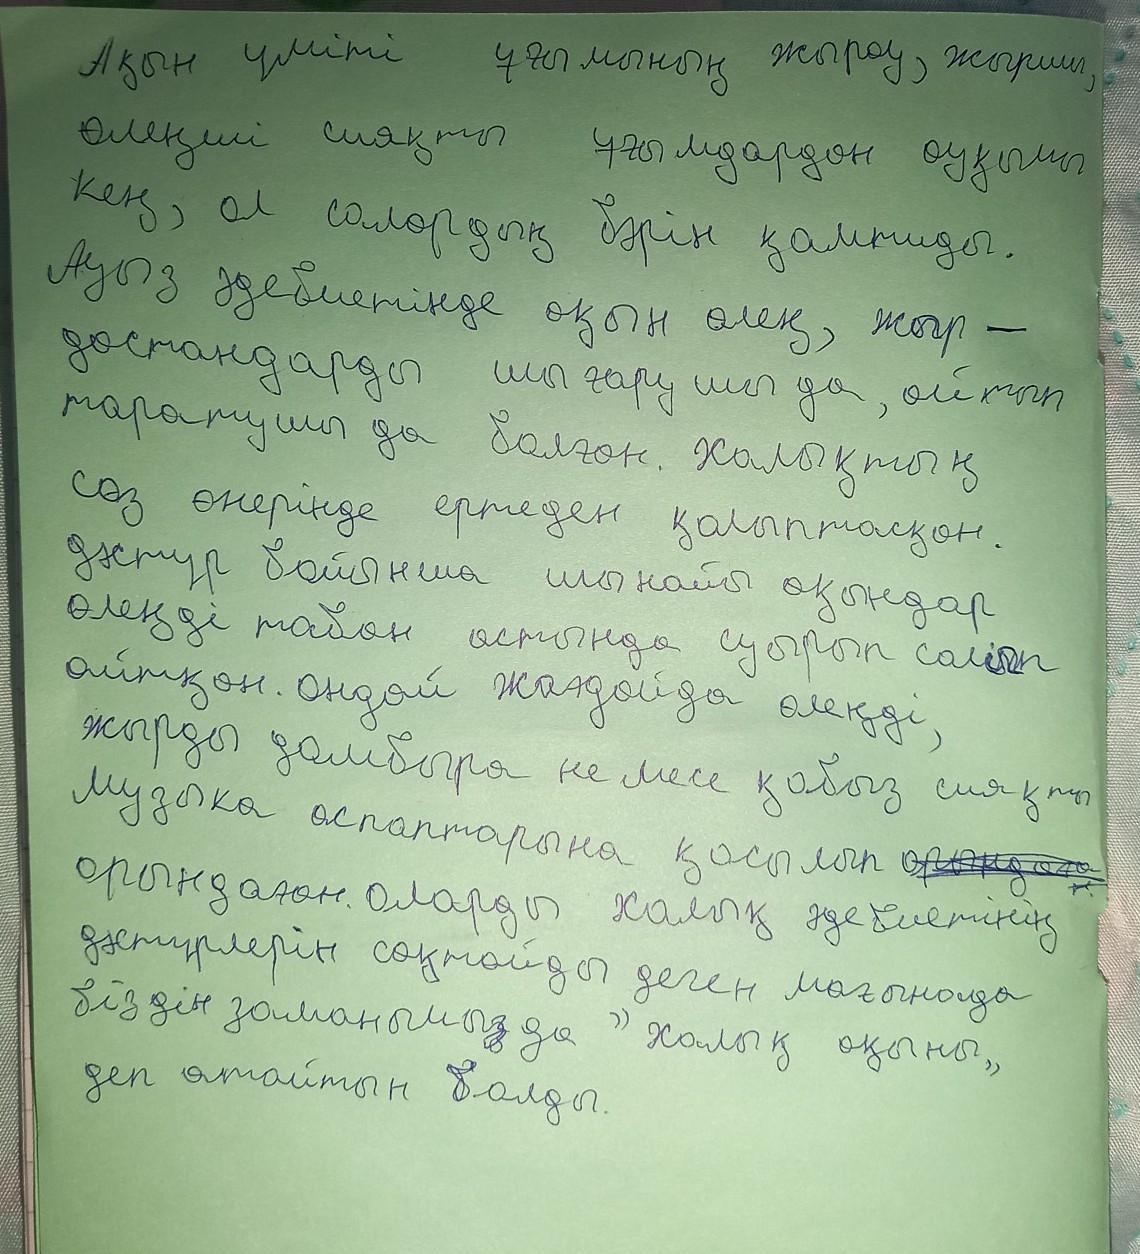 Ақын үміті ұғымының жырау, жыршы,
өлеңші сияқты ұғымдардан ауқымы
кең, ол солардың бәрін қамтиды.
Ауыз әдебиетінде ақын өлең, жыр –
дастандарды шығарушы да, айтып
таратушы да болған. Халықтың
сөз өнерінде ертеден қалыптасқан.
дәстүр бойынша шынайы ақындар
өлеңді табан астында суырып салып
айтқан. ондай жағдайда өлеңді,
жырды домбыра немесе қобыз сияқты
музыка аспаптарына қосылып
орындаған. Оларды халық әдебиетінің
дәстүрлерін сақтайды деген мағынада
біздің заманымызда "халық ақыны"
деп атайтын болды.